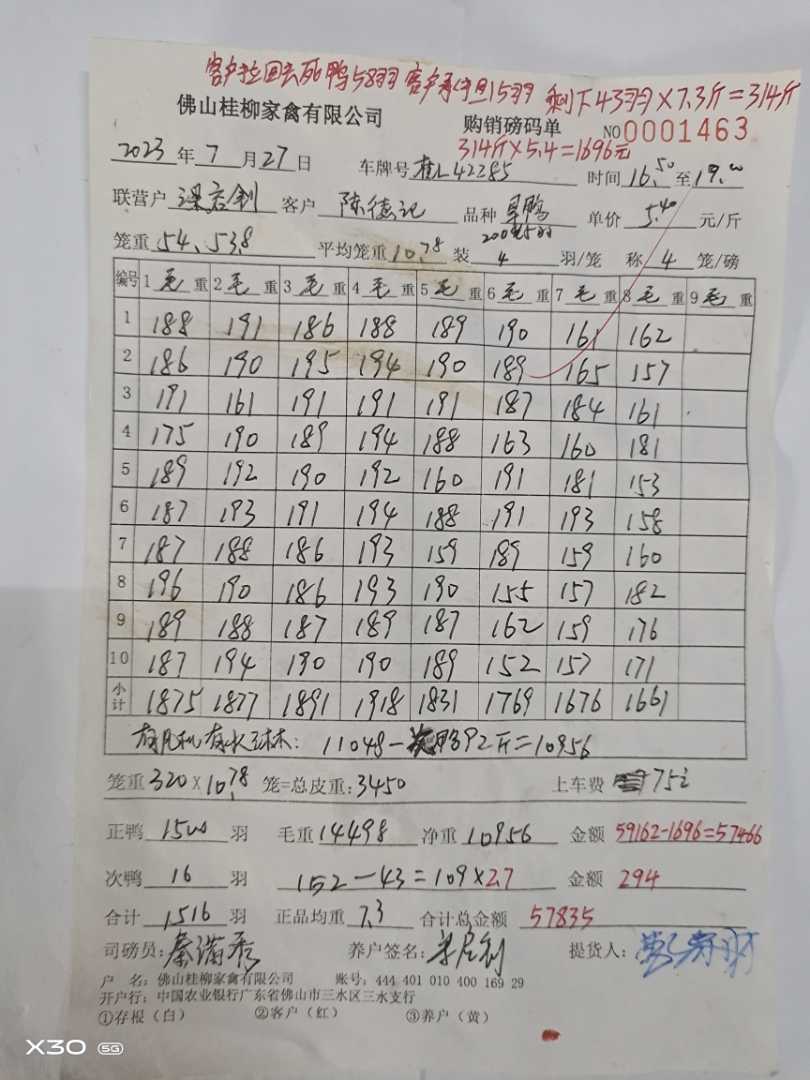 客户拉回去死鸭58羽 客户承担15羽 剩下43羽×7.3斤=314斤
佛山桂柳家禽有限公司 购销磅码单 NO0001463
314斤×5.4=1696元
2023年7月27日 车牌号桂L42285 时间16:50至19:00
联营户 客户 陈德记 品种 单价 5.40 元/斤
笼重54、53.8 平均笼重10.78 装 4 羽/笼 称 4 笼/磅
编号 1毛重 2毛重 3毛重 4毛重 5毛重 6毛重 7毛重 8毛重 9毛重
1 188 191 186 188 189 190 161 162
2 186 190 195 194 190 189 165 157
3 191 161 191 191 191 187 184 161
4 175 190 189 194 188 163 160 181
5 189 192 190 192 160 191 181 153
6 187 193 191 194 188 191 193 158
7 187 188 186 193 159 189 159 160
8 196 190 186 193 190 155 157 182
9 189 188 187 189 187 162 159 176
10 187 194 190 190 189 152 157 171
小计 1875 1877 1891 1918 1831 1769 1676 1661
11048-次鸭92斤=10956
笼重320×10.78 笼=总皮重:3450 上车费 75
正鸭 1500 羽 毛重14498 净重10956 金额 59162-1696=57466
次鸭 16 羽 152-43=109×2.7 金额 294
合计 1516 羽 正品均重 7.3 合计总金额 57835
司磅员:秦满秀 养户签名: 提货人:
户 名:佛山桂柳家禽有限公司 账号:444 401 010 400 169 29
开户行:中国农业银行广东省佛山市三水区三水支行
①存根(白) ②客户(红) ③养户(黄)
X30 5G